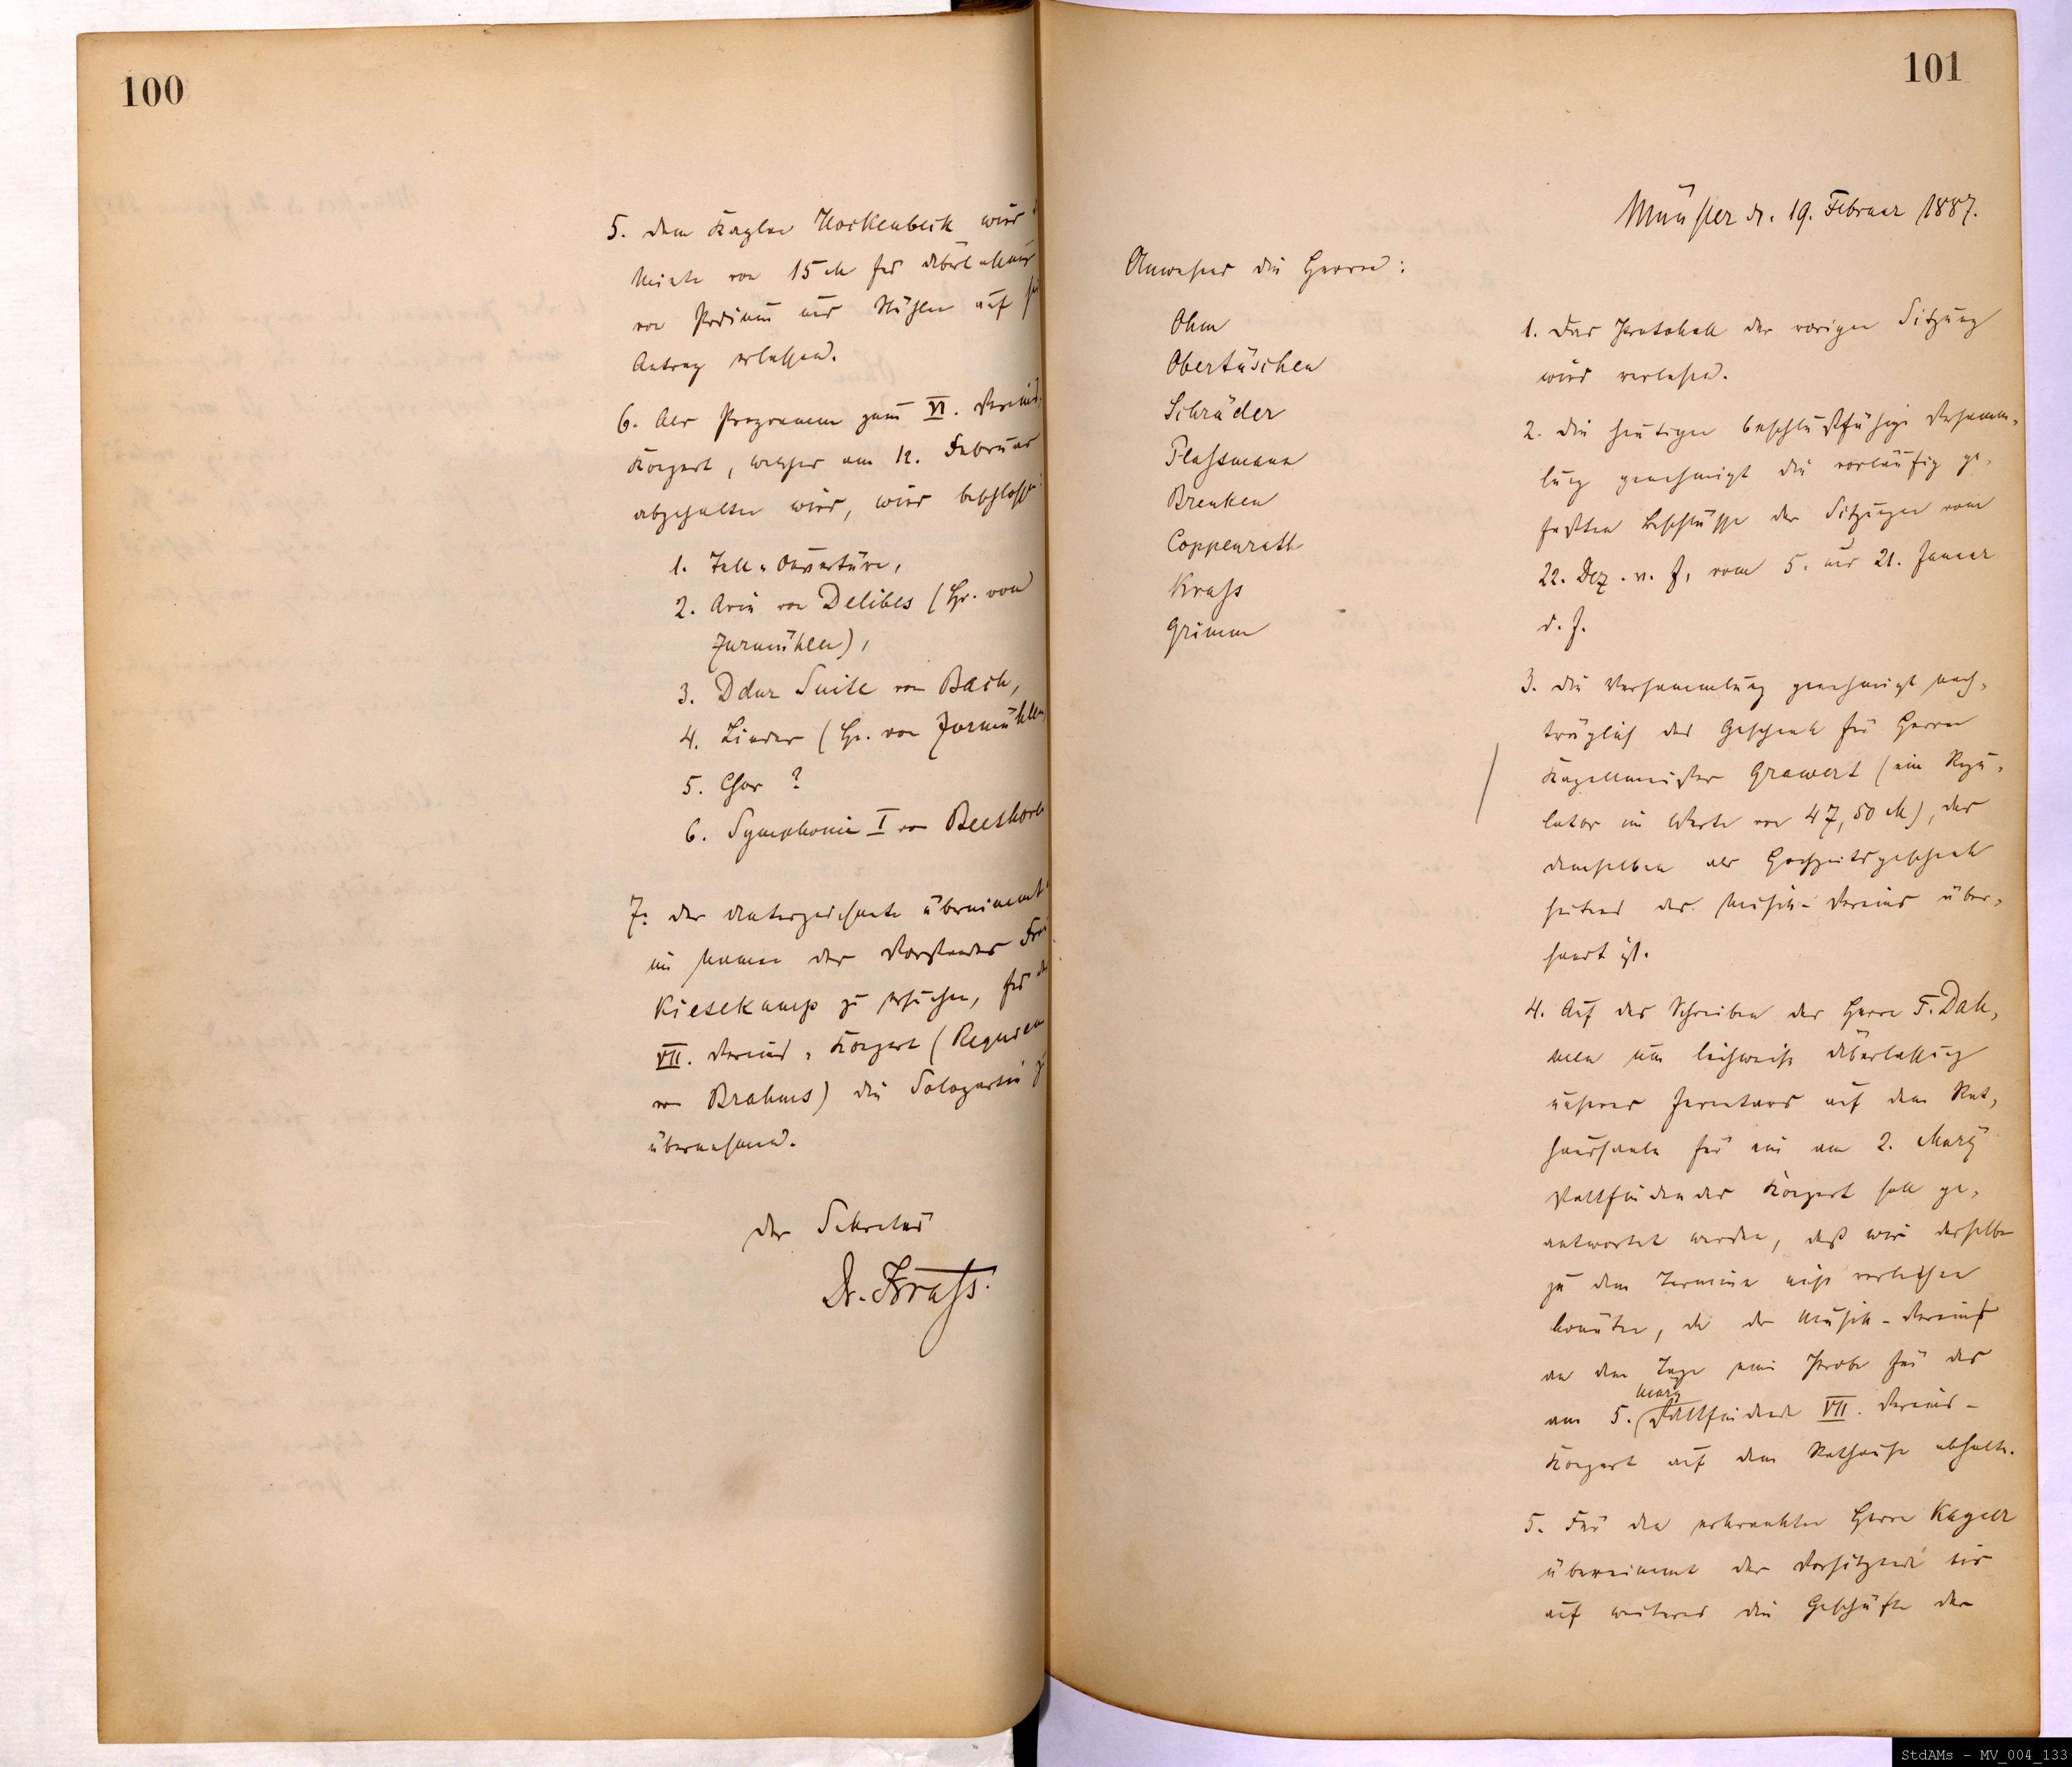 100
5. Dem Kaplan Hockenbeck wird
Miete von 15 M für Überlassung
von Podium und Stühlen auf
Antrag erlassen.
6. Als Programm zum VI. Vereins-
Konzert, welches am 12. Februar
abgehalten wird, wird beschlossen:
1. Tell-Ouvertüre,
2. Arie von Delibes (Hr. von
Zurmühlen),
3. Ddur Suite von Bach,
4. Lieder (Hr. von Zurmühlen)
5. Chor ?
6. Symphonie I von Beethoven
7. Der Unterzeichnete übernimmt
im Namen des Vorstandes Frau
Kiesekamp zu ersuchen, für das
VII. Vereins-Konzert (Requiem
von Brahms) die Solopartie zu
übernehmen.
Der Sekretär
Dr. Krass.
101
Münster d. 19. Februar 1887.
Anwesend die Herren:
Ohm
Obertüschen
Schräder
Plassmann
Brenken
Coppenrath
Krass
Grimm
1. Das Protokoll der vorigen Sitzung
wird verlesen.
2. Die heutige beschlußfähige Versamm-
lung genehmigt die vorläufig ge-
faßten Beschlüsse der Sitzungen vom
22. Dez. v. J., vom 5. und 21. Januar
d. J.
3. Die Versammlung genehmigt nach-
träglich das Geschenk für Herrn
Kapellmeister Grawert (ein Regu-
lator im Werte von 47,50 M), das
demselben als Hochzeitsgeschenk
seitens des Musik-Vereins über-
sandt ist.
4. Auf das Schreiben des Herrn F. Dah-
men um leihweise Überlassung
unseres Inventars auf dem Rat-
haussaale für ein am 2. März
stattfindendes Konzert soll ge-
antwortet werden, daß wir dasselbe
zu dem Termine nicht verleihen
könnten, da der Musik-Verein
an dem Tage eine Probe für das
am 5. März stattfindende VII. Vereins-
Konzert auf dem Rathause abhalte.
5. Für den erkrankten Herrn Kayser
übernimmt der Vorsitzende bis
auf weiteres die Geschäfte der
StdAMs - MV_004_133